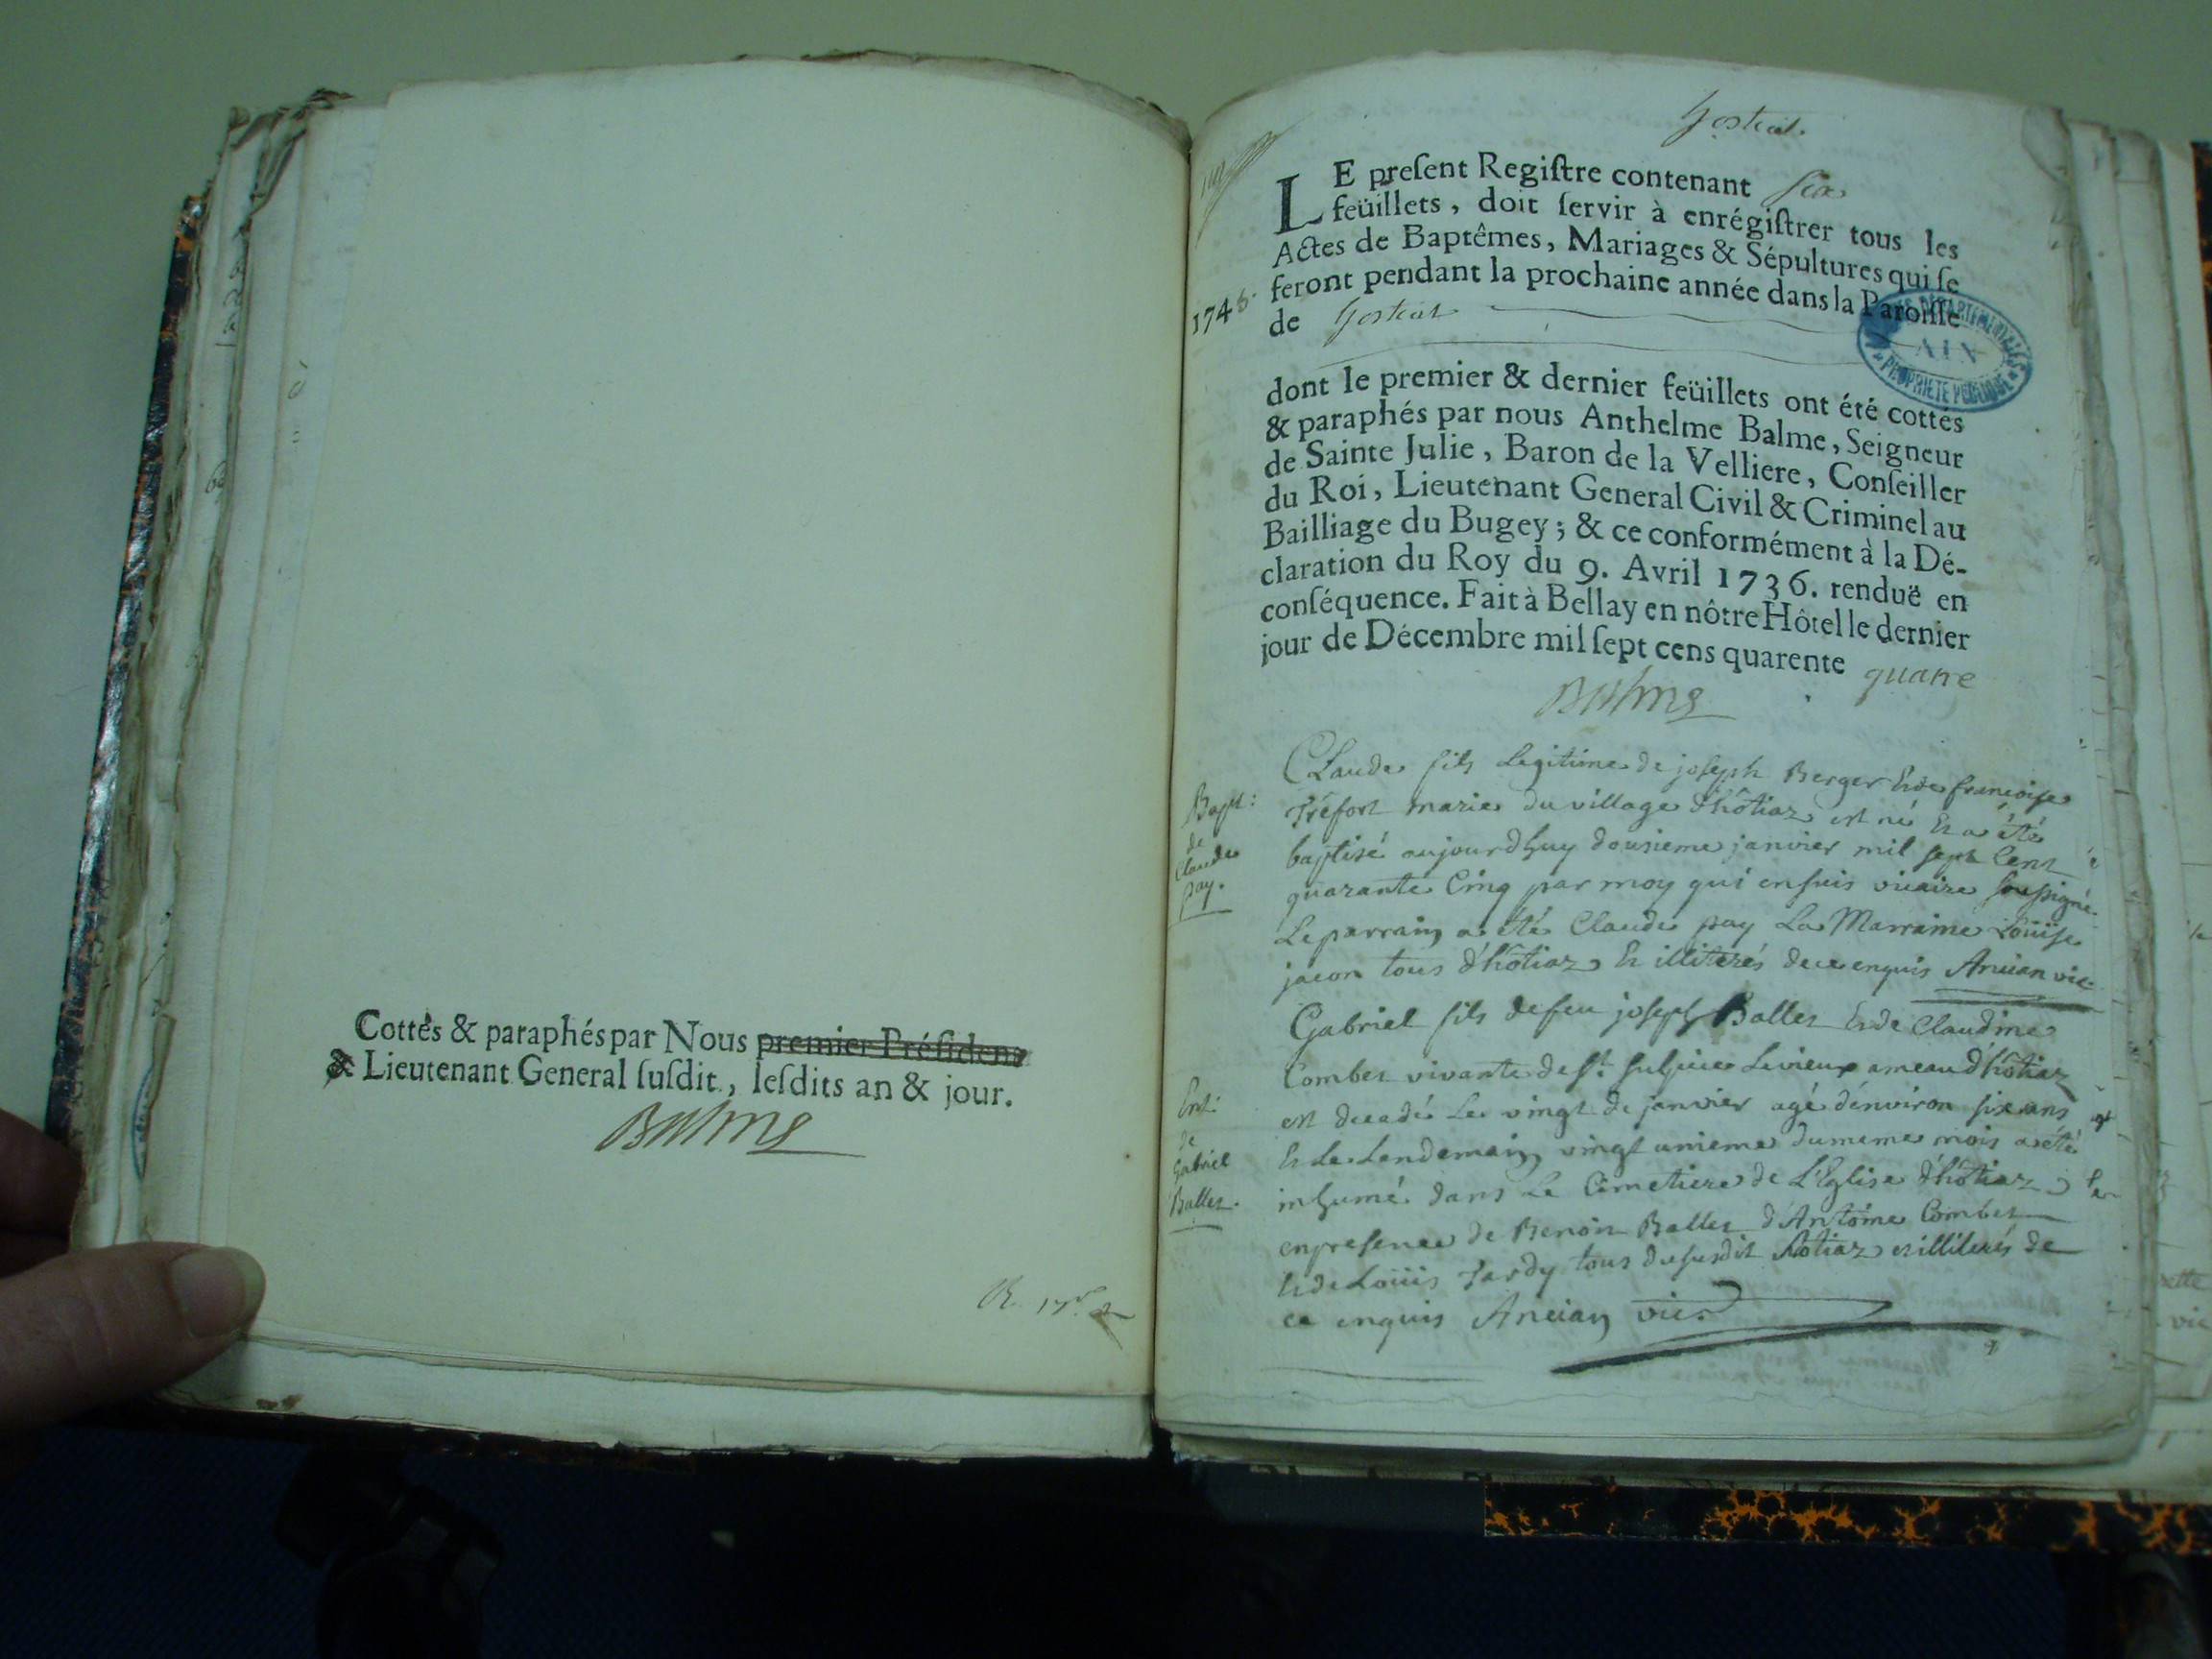 Cottès & paraphés par Nous premier Présidens
& Lieutenant General susdit, lesdits an & jour.
Balme
hostiat.
LE present Registre contenant six
feüillets, doit servir à enrégistrer tous les
Actes de Baptêmes, Mariages & Sépultures qui se
feront pendant la prochaine année dans la Paroisse
1745.
de hostiat
ARCHIVES DEPARTEMENTALES
AIN
PROPRIETE PUBLIQUE
dont le premier & dernier feüillets ont été cottés
& paraphés par nous Anthelme Balme, Seigneur
de Sainte Julie, Baron de la Velliere, Conseiller
du Roi, Lieutenant General Civil & Criminel au
Bailliage du Bugey; & ce conformément à la Dé-
claration du Roy du 9. Avril 1736. renduë en
conséquence. Fait à Bellay en nôtre Hôtel le dernier
jour de Décembre mil sept cens quarente quatre
Balme
Bapt:
de
Claude
pay.
Claude fils Legitime de joseph Berger Et de françoise
Tréfort marie du village d'hôtiaz est né Et a été
baptisé aujourdhuy dousieme janvier mil sept Cent
quarante Cinq par moy qui ensuis vicaire soussigné.
Le parrain a été Claude pay La Marraine Loüise
jacon tous d'hôtiaz Et illiterés de ce enquis Ancian vic.
Ent:
de
Gabriel
Ballet.
Gabriel fils de feu joseph Ballet Et de Claudine
Combet vivante de St. sulpice Levieux ameau d'hôtiaz
est decedé Le vingt de janvier agé d'environ six ans
Et Le Lendemain vingt unieme du meme mois a été
inhumé dans Le Cimetiere de L'Eglise d'hôtiaz
en presence de Benoit Ballet d'Antoine Combet
Et de Loüis Tardy tous du susdit hôtiaz et illiterés de
ce enquis Ancian vic.